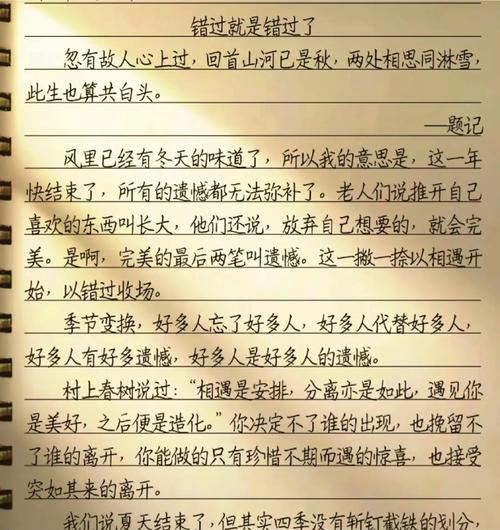 错过就是错过了
忽有故人心上过，回首山河已是秋，两处相思同淋雪，
此生也算共白头。
—题记
风里已经有冬天的味道了，所以我的意思是，这一年
快结束了，所有的遗憾都无法弥补了。老人们说推开自己
喜欢的东西叫长大，他们还说，放弃自己想要的，就会完
美。是啊，完美的最后两笔叫遗憾。这一撇一捺以相遇开
始，以错过收场。
季节变换，好多人忘了好多人，好多人代替好多人，
好多人有好多遗憾，好多人是好多人的遗憾。
村上春树说过：“相遇是安排，分离亦是如此，遇见你
是美好，之后便是造化。”你决定不了谁的出现，也挽留不
了谁的离开，你能做的只有珍惜不期而遇的惊喜，也接受
突如其来的离开。
我们说夏天结束了，但其实四季没有斩钉截铁的划分，